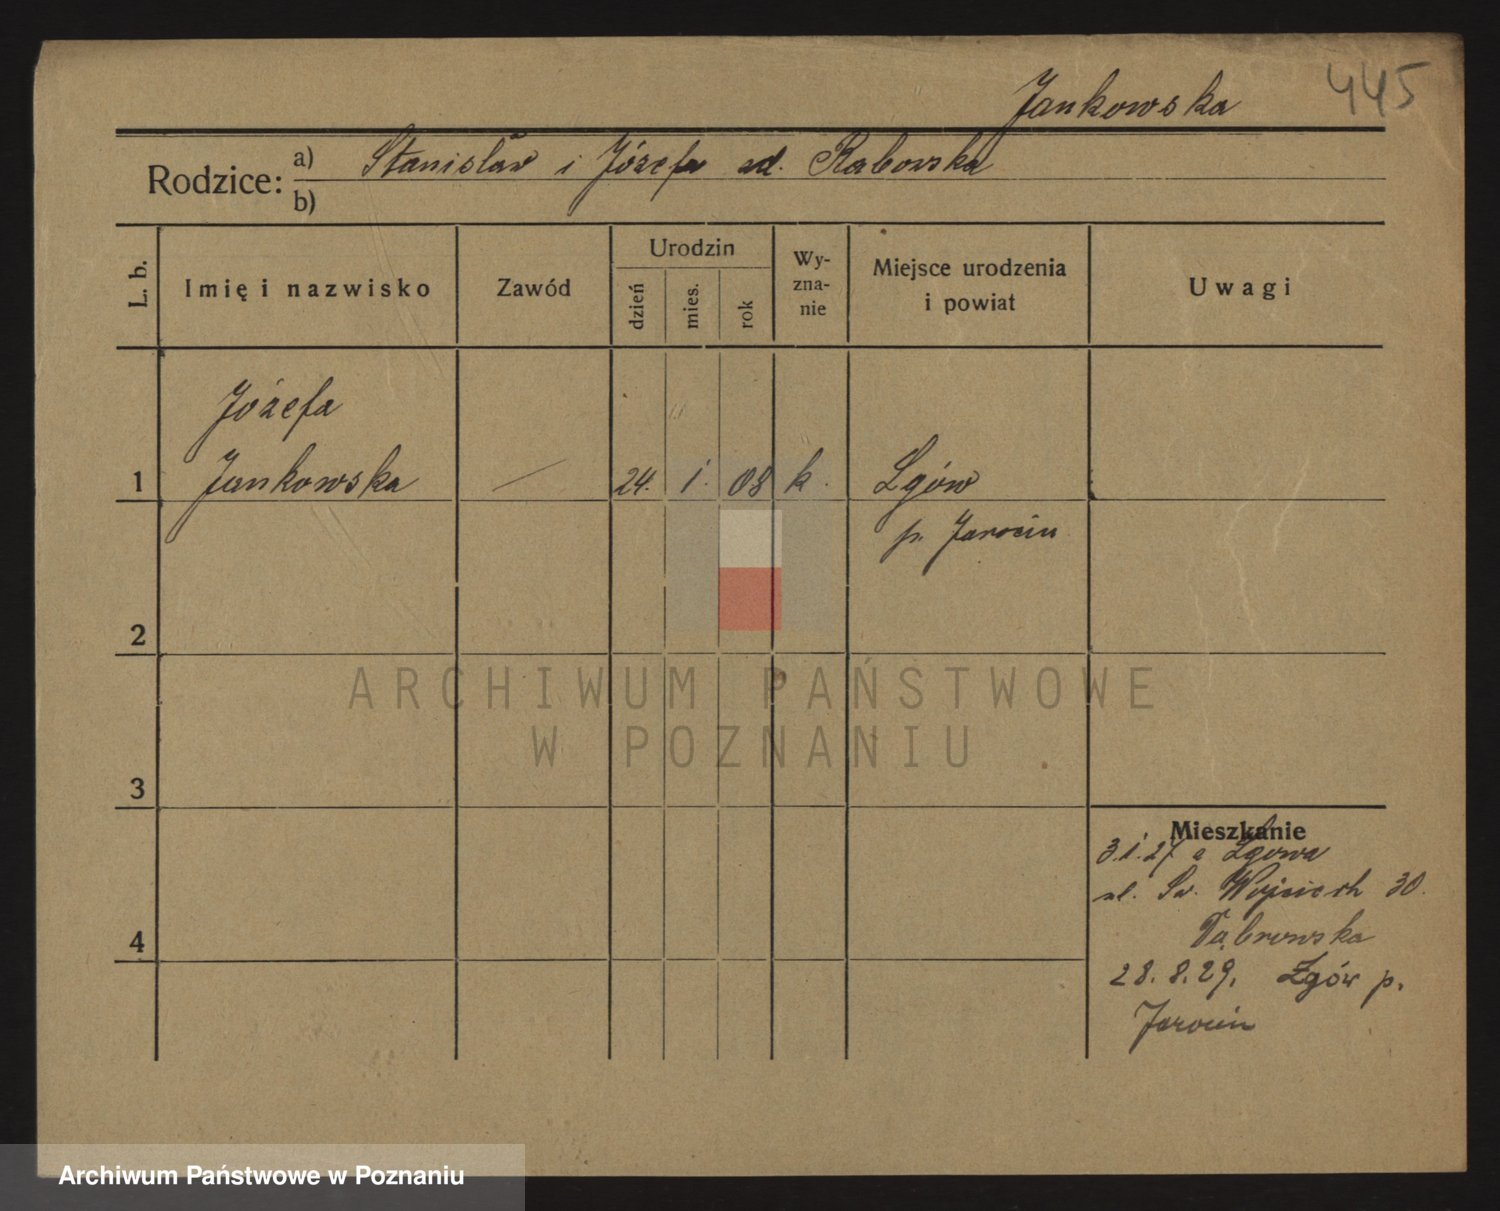 445
Jankowska
Rodzice: a) Stanisław i Józefa zd. Rabowska
b)
L. b.
Imię i nazwisko
Zawód
Urodzin
dzień
mies.
rok
Wy-
zna-
nie
Miejsce urodzenia
i powiat
Uwagi
Józefa
1 Jankowska — 24. 1. 08 k. Lgów
p. Jarocin
2
3
4
ARCHIWUM PAŃSTWOWE
W POZNANIU
Mieszkanie
3.1.27. z Lgowa
ul. Św. Wojciech 30.
28.8.29. Lgów p.
Jarocin
Archiwum Państwowe w Poznaniu